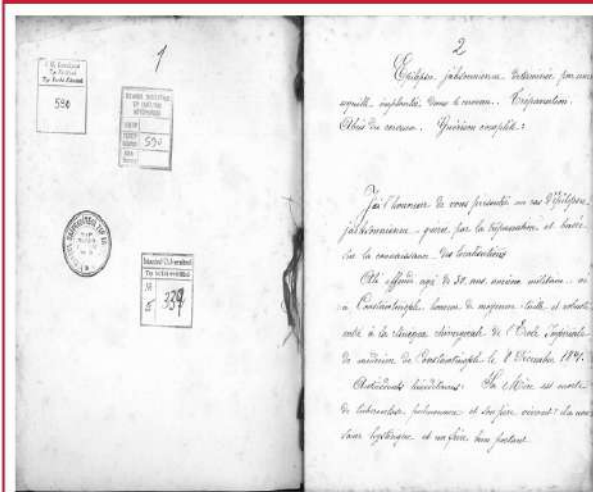 1
590
590
339
2
Epilepsie jacksonienne déterminée par une
aiguille implantée dans le cerveau. Trépanation.
Abcès du cerveau. Guérison complète.
J'ai l'honneur de vous présenter un cas d'épilepsie
jacksonienne guérie par la trépanation et basée
sur la connaissance des localisations
Ali effendi agé de 30 ans, ancien militaire, né
à Constantinople homme de moyenne taille et robuste
entré à la clinique chirurgicale de l'Ecole Impériale
de médecine de Constantinople le 8 Décembre 1891.
Antécédents héréditaires: Sa Mère est morte
de tuberculose pulmonaire et son père vivant; il a une
sœur hystérique et un frère bien portant